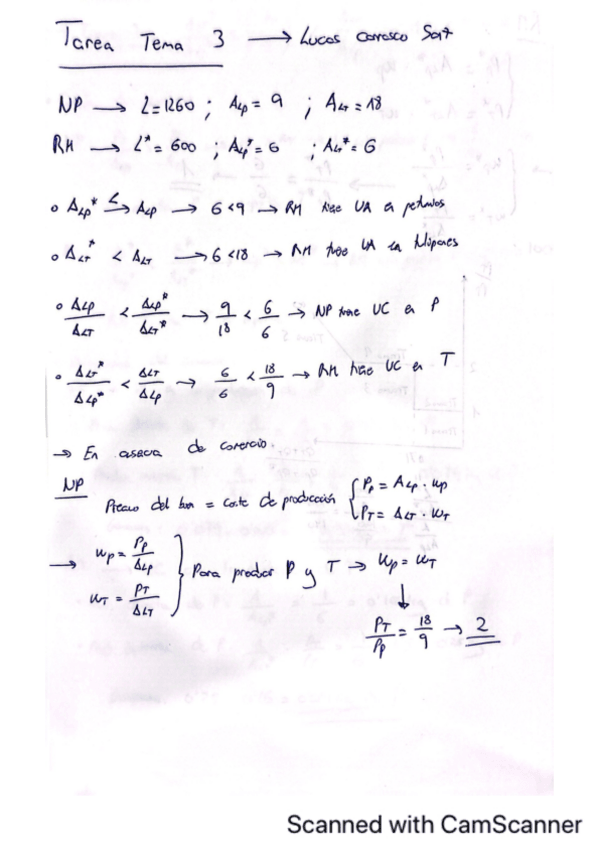 Tarea Tema 3 → Lucas Carrasco
NP → L=1260 ; ALP = 9 ; ALT = 18
RH → L* = 600 ; ALP* = 6 ; ALT* = 6
o ALP* < → ALP → 6<9 → RH tiene VA en petardos
o ALT* < ALT → 6<18 → RH tiene VA en
o ALP/ALT < ALP*/ALT* → 9/18 < 6/6 → NP tiene VC en P
o ALT*/ALP* < ALT/ALP → 6/6 < 18/9 → RH tiene VC en T
→ En de comercio.
NP
Precio del bien = coste de producción { PP = ALP · wP
PT = ALT · wT
→ wP = PP/ALP
wT = PT/ALT
} Para producir P y T → wP = wT
↓
PT/PP = 18/9 → 2
Scanned with CamScanner